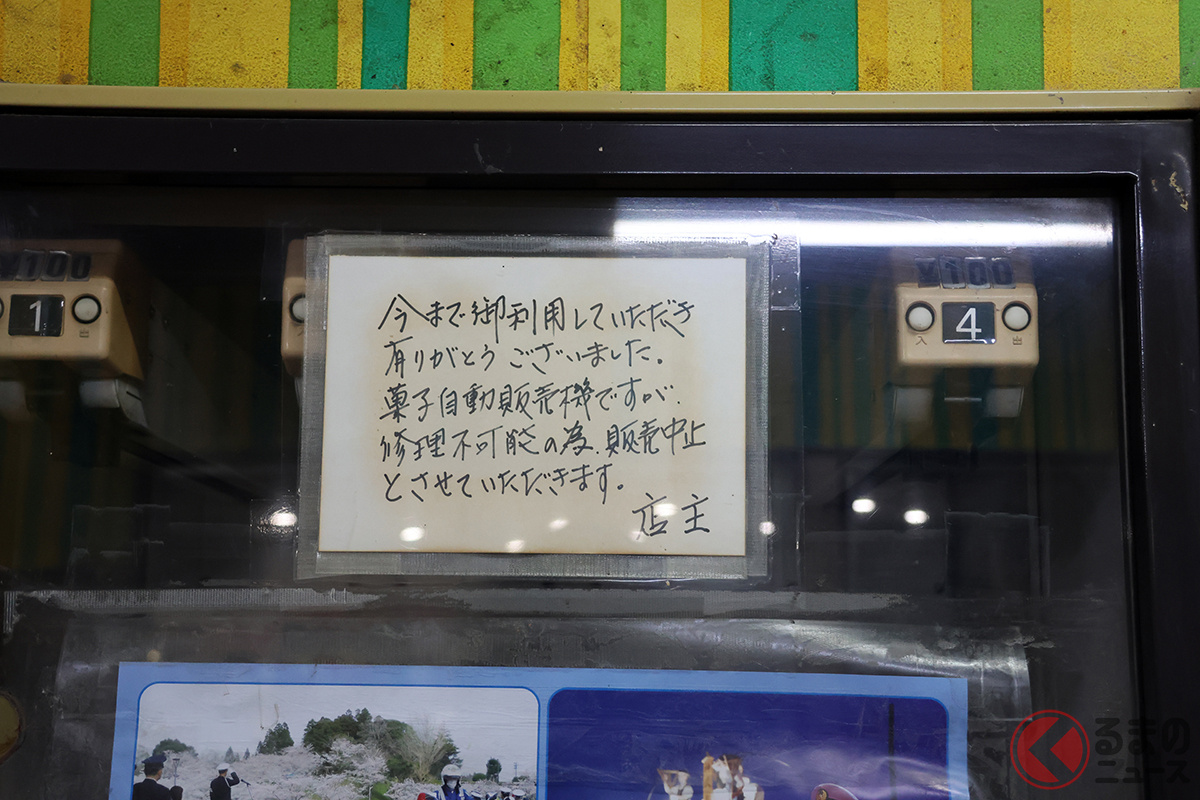 ¥100
1
出
¥100
4
入
出
今まで御利用していただき
有りがとうございました。
菓子自動販売機ですが、
修理不可能の為、販売中止
とさせていただきます。
店主
くるまの
ニュース